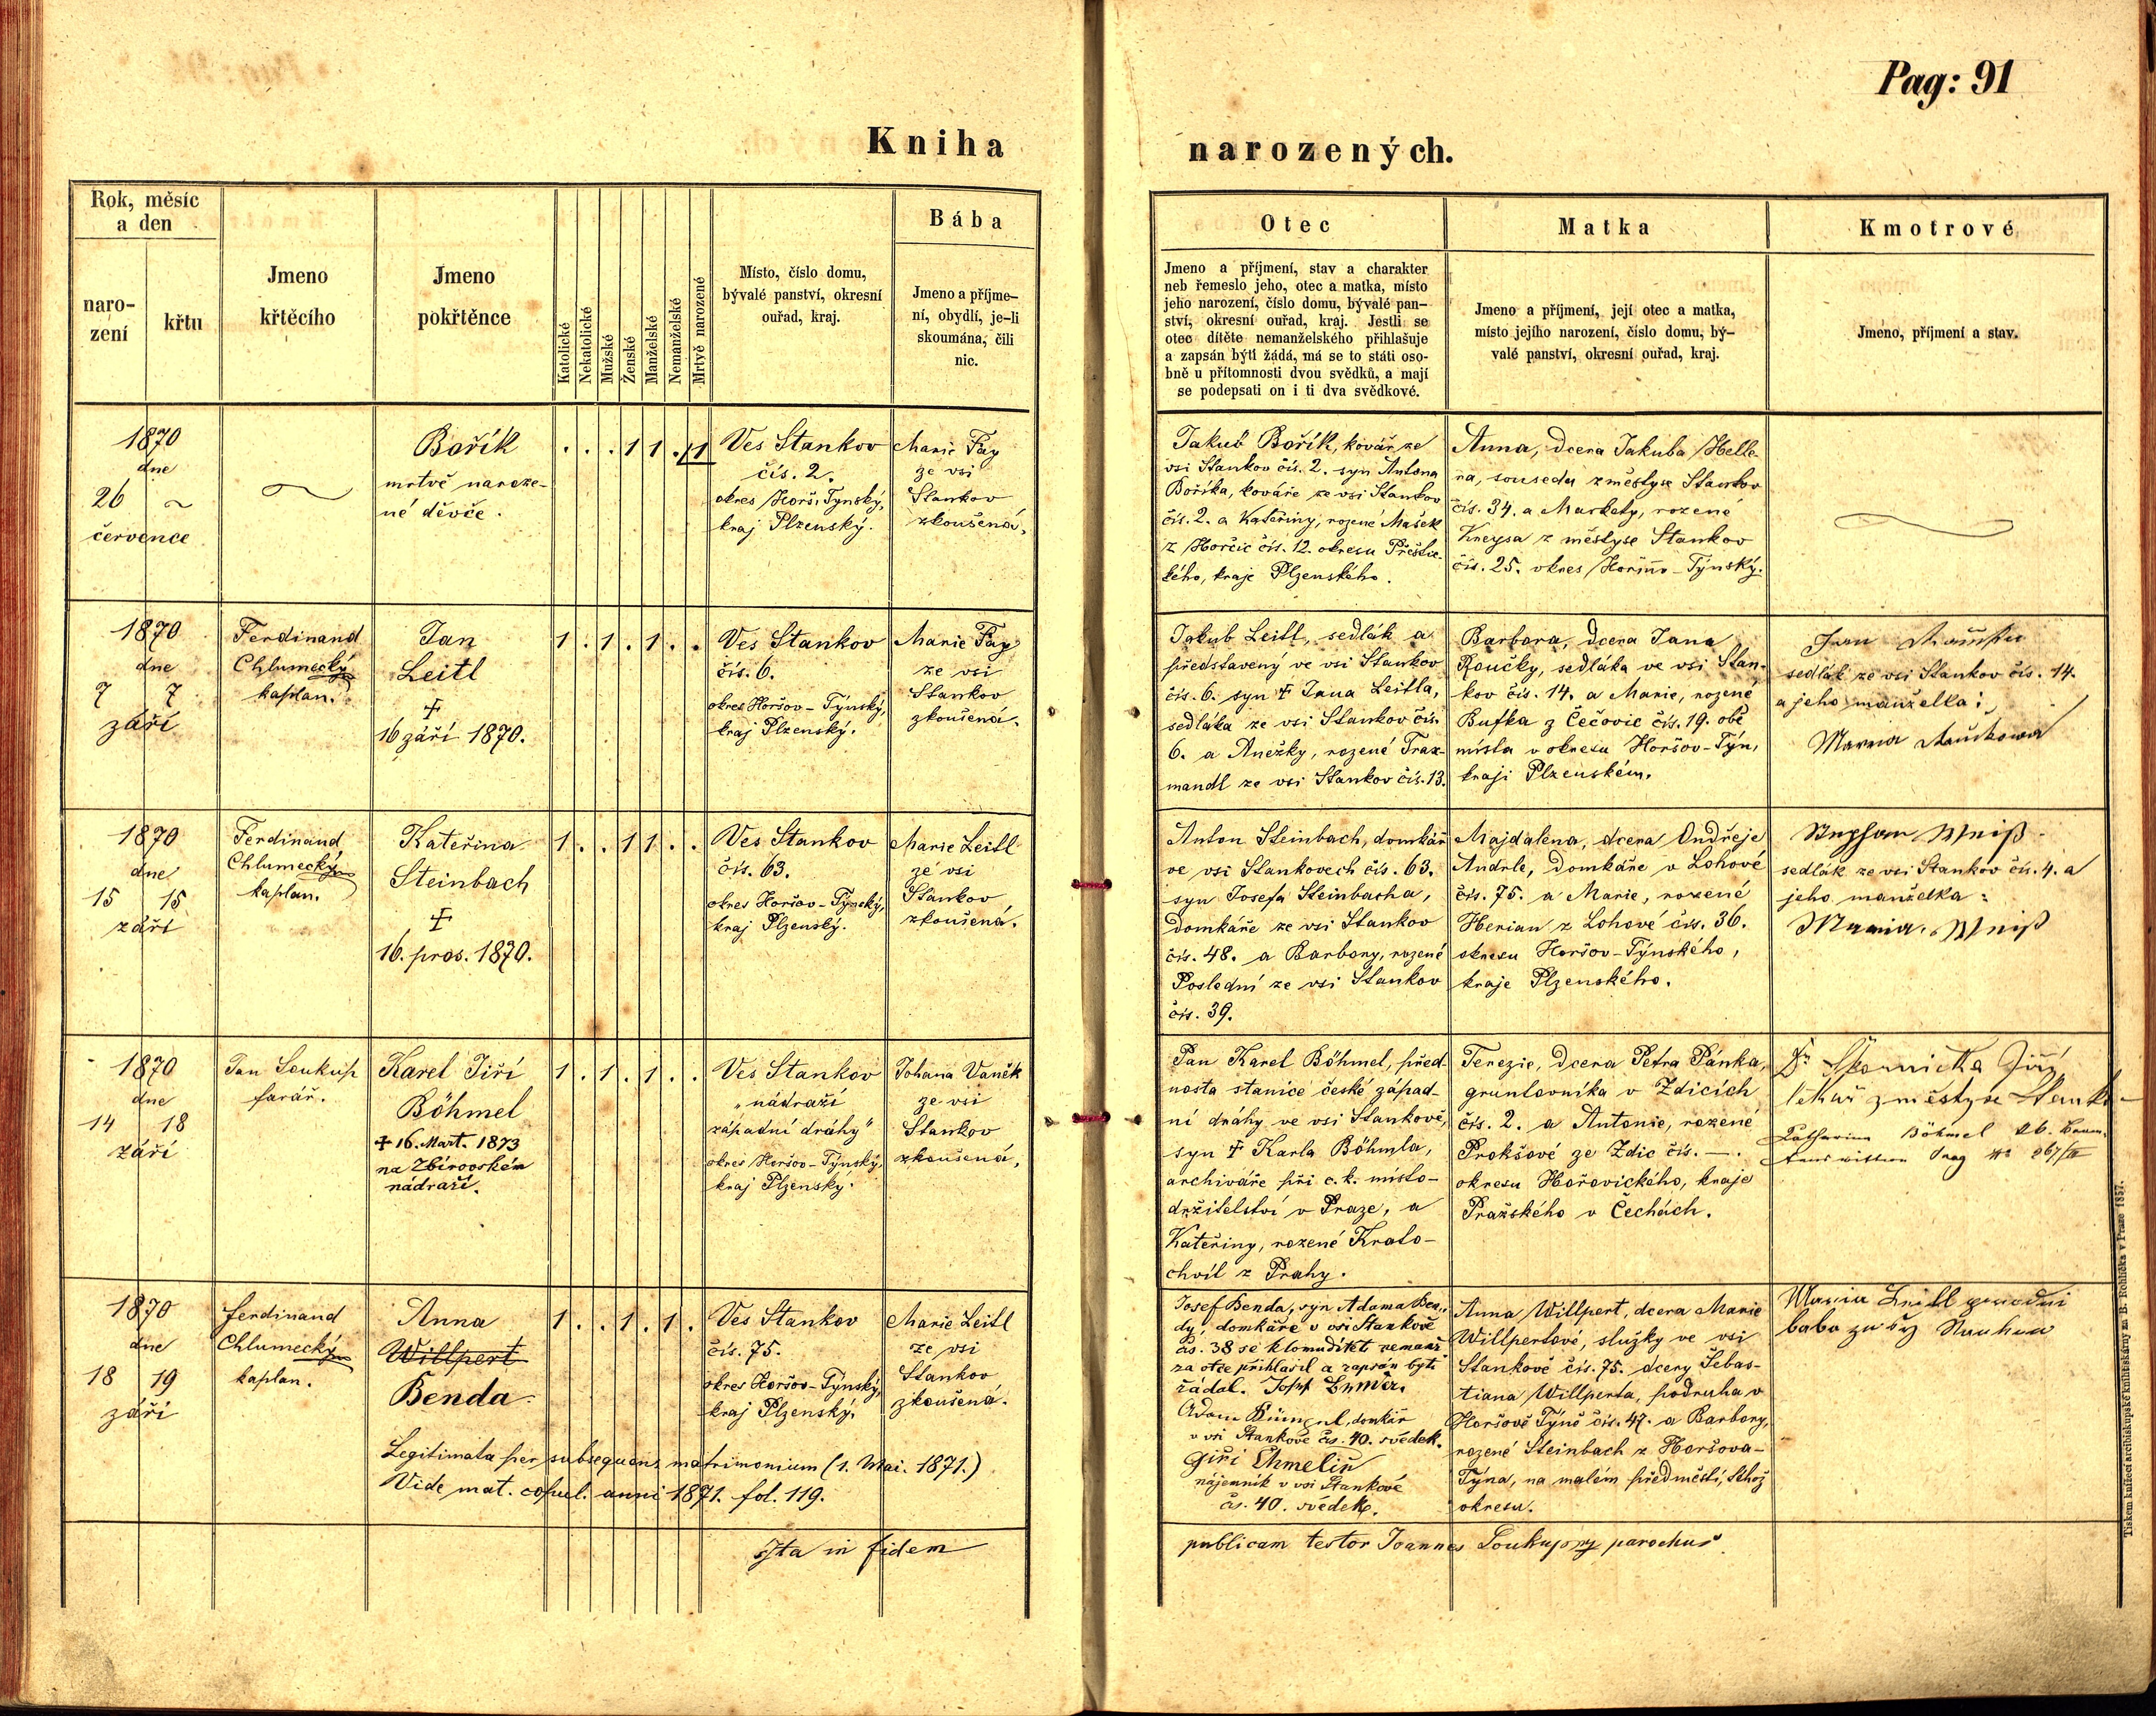 Pag: 91
Kniha
narozených.
Rok, měsíc
a den
naro-
zení
křtu
Jmeno
křtěcího
Jmeno
pokřtěnce
Katolické
Nekatolické
Mužské
Ženské
Manželské
Nemanželské
Mrtvě narozené
Místo, číslo domu,
bývalé panství, okresní
ouřad, kraj.
Bába
Jmeno a příjme-
ní, obydlí, je-li
skoumána, čili
nic.
Otec
Jmeno a příjmení, stav a charakter
neb řemeslo jeho, otec a matka, místo
jeho narození, číslo domu, bývalé pan-
ství, okresní ouřad, kraj. Jestli se
otec dítěte nemanželského přihlašuje
a zapsán býti žádá, má se to státi oso-
bně u přítomnosti dvou svědků, a mají
se podepsati on i ti dva svědkové.
Matka
Jmeno a příjmení, její otec a matka,
místo jejího narození, číslo domu, bý-
valé panství, okresní ouřad, kraj.
Kmotrové
Jmeno, příjmení a stav.
1870
dne
26 ~
července
Bořík
mrtvě naroze-
né děvče.
. . . 1 1 . 1
Ves Stankov
čís. 2.
okres Horš. Tynský,
kraj Plzenský.
Marie Fay
ze vsi
Stankov
zkoušená.
Jakub Bořík, kovář ze
vsi Stankov čís. 2. syn Antona
Boříka, kováře ze vsi Stankov
čís. 2. a Kateřiny, rozené Mašek
z Horčic čís. 12. okresu Přeštic-
kého, kraje Plzenského.
Anna, dcera Jakuba Helle-
ra, souseda z městyse Stankov
čís. 34. a Markety, rozené
Kneysa z městyse Stankov
čís. 25. okres Horšov-Týnský.
1870
dne
7 7
září
Ferdinand
Chlumecký
kaplan.
Jan
Leitl
†
16 září 1870.
1 . 1 . 1 . .
Ves Stankov
čís. 6.
okres Horšov-Týnský,
kraj Plzenský.
Marie Fay
ze vsi
Stankov
zkoušená.
Jakub Leitl, sedlák a
představený ve vsi Stankov
čís. 6. syn † Jana Leitla,
sedláka ze vsi Stankov čís.
6. a Anežky, rozené Trax-
mandl ze vsi Stankov čís. 13.
Barbora, dcera Jana
Roučky, sedláka ve vsi Stan-
kov čís. 14. a Marie, rozené
Bufka z Čečovic čís. 19. obě
místa v okresu Horšov-Týn,
kraji Plzenském.
sedlák ze vsi Stankov čís. 14.
a jeho manželka:
1870
dne
15 15
září
Ferdinand
Chlumecký
kaplan.
Kateřina
Steinbach
†
16. pros. 1870.
1 . . 1 1 . .
Ves Stankov
čís. 63.
okres Horšov-Týnský,
kraj Plzenský.
Marie Leitl
ze vsi
Stankov
zkoušená.
Anton Steinbach, domkář
ve vsi Stankovech čís. 63.
syn Josefa Steinbacha,
domkáře ze vsi Stankov
čís. 48. a Barbory, rozené
Poslední ze vsi Stankov
čís. 39.
Majdalena, dcera Ondřeje
Andrle, domkáře v Lohové
čís. 75. a Marie, rozené
Herian z Lohové čís. 36.
okresu Horšov-Týnského,
kraje Plzenského.
Stephan Weiß
sedlák ze vsi Stankov čís. 4. a
jeho manželka:
Maria Weiß
1870
dne
14 18
září
Jan Soukup
farář.
Karel Jiří
Böhmel
† 16. Mart. 1873
na Zbirovském
nádraží.
1 . 1 . 1 . .
Ves Stankov
„nádraží
západní dráhy"
okres Horšov-Týnský,
kraj Plzenský.
Johana Vaněk
ze vsi
Stankov
zkoušená.
Pan Karel Böhmel, před-
nosta stanice české západ-
ní dráhy ve vsi Stankově,
syn † Karla Böhmla,
archiváře při c. k. místo-
držitelství v Praze, a
Kateřiny, rozené Krato-
chvil z Prahy.
Terezie, dcera Petra Pánka,
gruntovníka v Zdicích
čís. 2. a Antonie, rozené
Prokšové ze Zdic čís. —.
okresu Hořovického, kraje
Pražského v Čechách.
Jiří
lékař z městyse
Katharina Böhmel
1870
dne
18 19
září
Ferdinand
Chlumecký
kaplan.
Anna
Willpert
Benda
1 . . 1 . 1 .
Ves Stankov
čís. 75.
okres Horšov-Týnský,
kraj Plzenský.
Marie Leitl
ze vsi
Stankov
zkoušená.
Legitimata per subsequens matrimonium (1. Mai. 1871.)
Vide mat. copul. anni 1871. fol. 119.
Josef Benda, syn Adama Ben-
dy, domkáře v vsi Stankově
čís. 38 se k tomu dítěti nemanž.
za otce přihlásil a zapsán býti
žádal.
Adam domkář
v vsi Stankově čs. 40. svědek.
Giři Chmeliř
nájemník v vsi Stankově
čs. 40. svědek.
Anna Willpert, dcera Marie
Willpertové, služky ve vsi
Stankově čís. 75. dcery Šebas-
tiana Willperta, podruha v
Horšově Týně čís. 47. a Barbory,
rozené Steinbach z Horšova-
Týna, na malém předměstí, téhož
okresu.
Maria Leitl
baba
Ita in fidem
publicam testor Joannes Soukup parochus
Tiskem knížecí arcibiskupské knihtiskárny za B. Rohlíčka v Praze 1857.